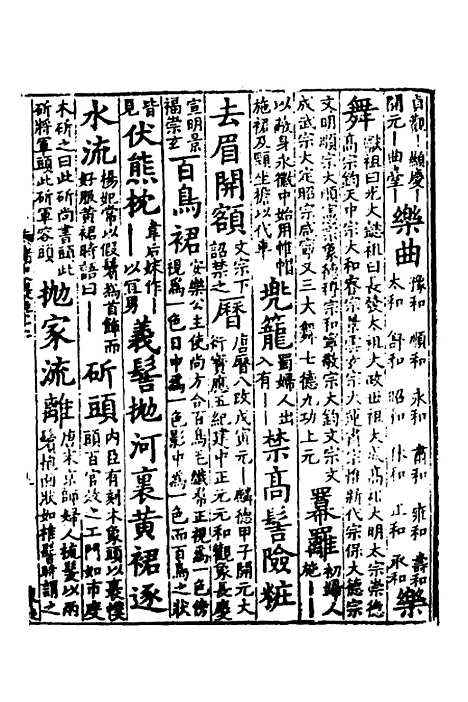 貞觀 顯慶
開元 曲臺
樂曲
豫和 順和 永和 肅和 雍和 壽和
太和 舒和 昭和 休和 正和 承和
樂
舞
獻祖曰光大懿祖曰長發太祖大政世祖大成高祖大明太宗崇德
高宗鈞天中宗大和睿宗景雲
文明順宗大順
宗保大德宗
成武宗大定昭宗咸寧又三大舞七德九功上元
羃䍦
初婦人
施
以蔽身永徽中始用帷帽
施裙及頸坐擔以代車
兜籠
蜀婦人出
入有
禁高髻險粧
去眉開額
文宗下
詔禁之
曆
唐曆八改戊寅元 麟德甲子開元大
衍寶應五紀建中正元元和觀象長慶
宣明景
福崇玄
百鳥裙
安樂公主使尚方合百鳥毛織帬正視爲一色傍
視爲一色日中爲一色影中爲一色而百鳥之狀
皆
見
伏熊枕
韋后妹作
以宜男
義髻抛河裏黃裙逐
水流
楊妃常以假髻爲首飾而
好服黃裙時語曰
斫頭
內臣有刻木象頭以裹幞
頭百官效之工門如市度
木斫之曰此斫尚書頭此
斫將軍頭此斫軍容頭
抛家流離
唐末京師婦人梳髮以兩
鬢抱面狀如椎髻時謂之